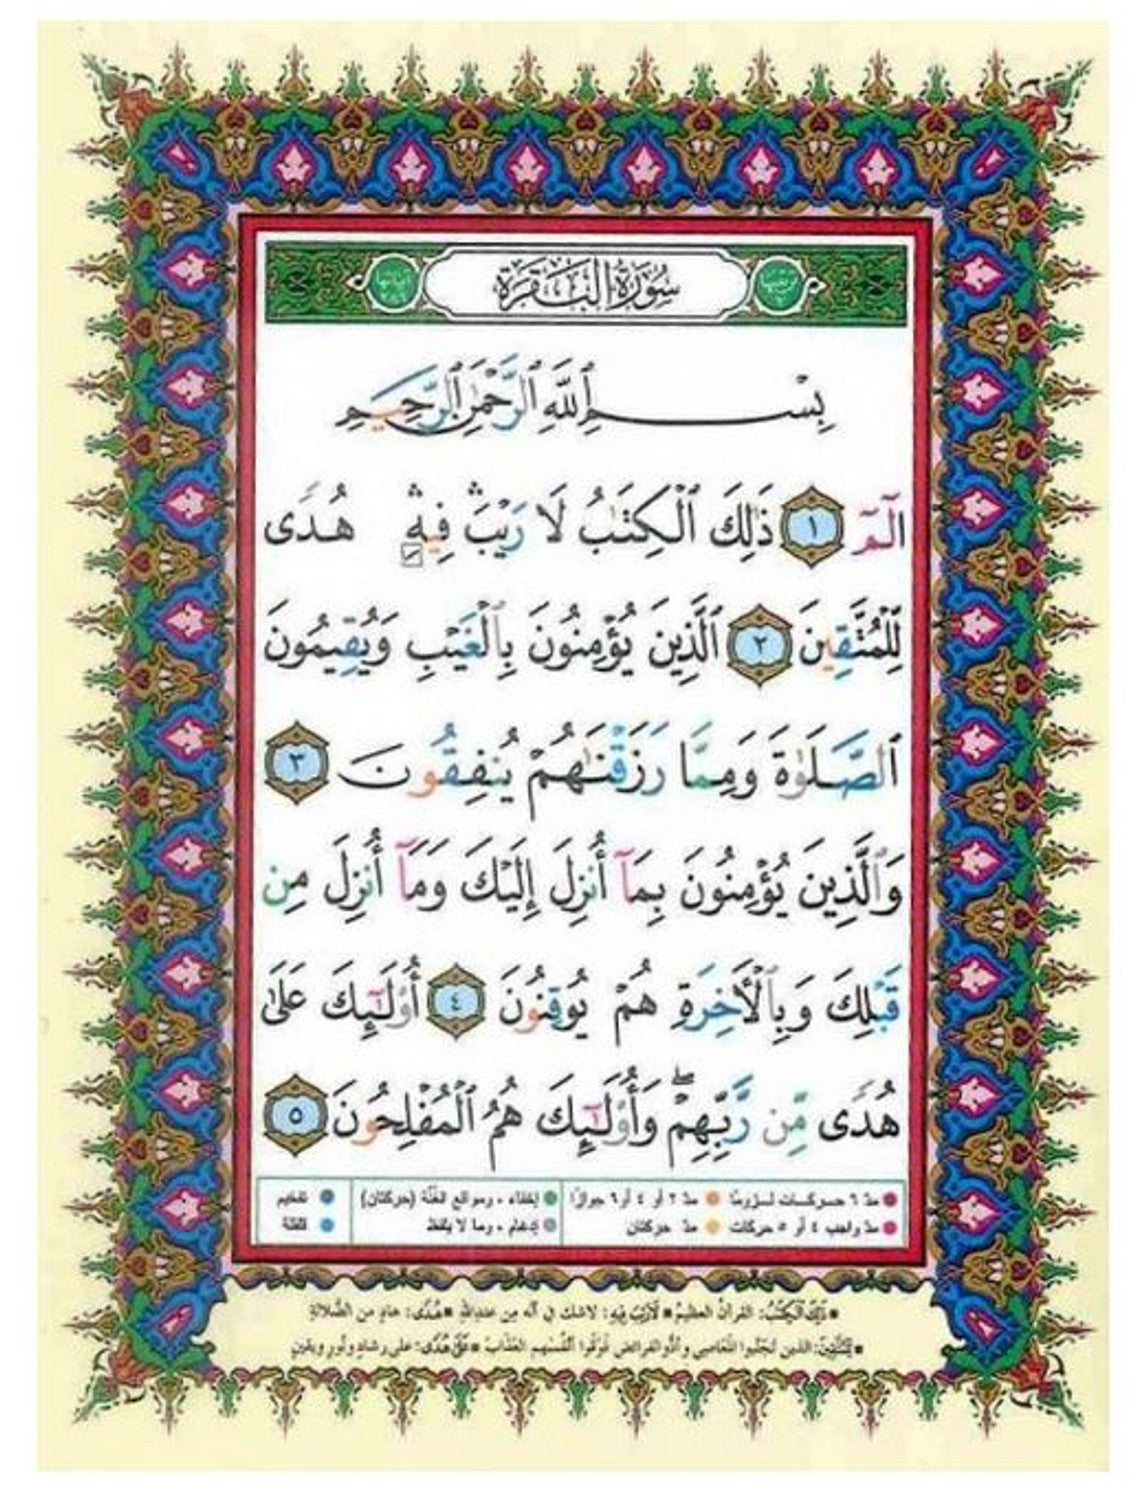 سُورَةُ الْبَقَرَة
بِسْمِ ٱللَّهِ ٱلرَّحْمَٰنِ ٱلرَّحِيمِ
الٓمٓ ١ ذَٰلِكَ ٱلْكِتَٰبُ لَا رَيْبَ ۛ فِيهِ ۛ هُدًى
لِّلْمُتَّقِينَ ٢ ٱلَّذِينَ يُؤْمِنُونَ بِٱلْغَيْبِ وَيُقِيمُونَ
ٱلصَّلَوٰةَ وَمِمَّا رَزَقْنَٰهُمْ يُنفِقُونَ ٣
وَٱلَّذِينَ يُؤْمِنُونَ بِمَآ أُنزِلَ إِلَيْكَ وَمَآ أُنزِلَ مِن
قَبْلِكَ وَبِٱلْأَخِرَةِ هُمْ يُوقِنُونَ ٤ أُو۟لَٰٓئِكَ عَلَىٰ
هُدًى مِّن رَّبِّهِمْ ۖ وَأُو۟لَٰٓئِكَ هُمُ ٱلْمُفْلِحُونَ ٥
مدّ ٦ حركات لزوماً ● مدّ ٢ أو ٤ أو ٦ جوازاً ● إخفاء، ومواقع الغُنَّة (حركتان) ● تفخيم
مدّ واجب ٤ أو ٥ حركات ● مدّ حركتان ● إدغام، وما لا يُلفَظ ● قلقلة
■ ذَٰلِكَ الْكِتَٰبُ: القرآنُ العظيمُ ■ لَا رَيْبَ فِيهِ: لاشك في أنه مِن عندِاللهِ ■ هُدًى: هادٍ من الضَّلالةِ
■ لِلْمُتَّقِينَ: الذين تجنَّبوا المَعاصِي وأدَّوا الفرائضَ فَوَقَوْا أنْفُسَهم العَذَابَ ■ عَلَىٰ هُدًى: على رشادٍ ونُورٍ ويقينٍ